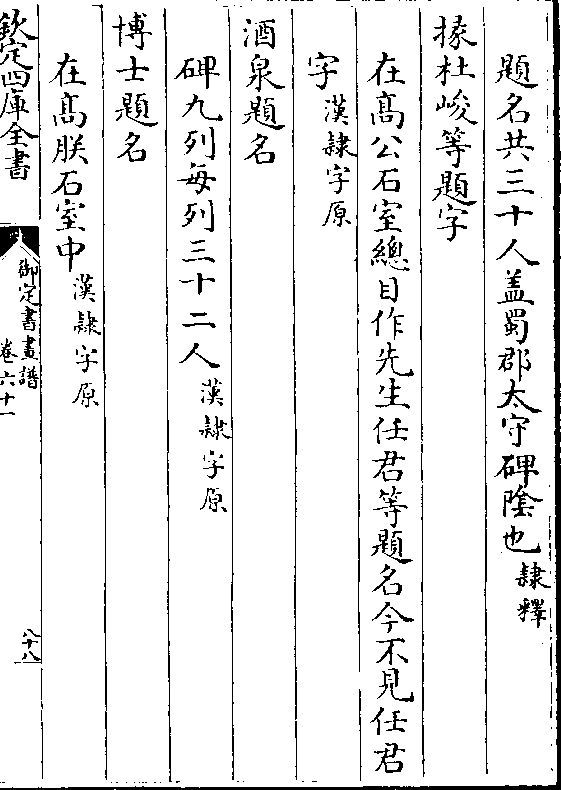 題名共三十人盖蜀郡太守碑陰也隸釋
掾杜峻等題字
在髙公石室總目作先生任君等題名今不見任君
字漢隸字原
酒泉題名
碑九列每列三十二人漢隸字原
博士題名
在髙朕石室中漢隸字原
欽定四庫全書
御定書畫譜
卷六十一
八十八